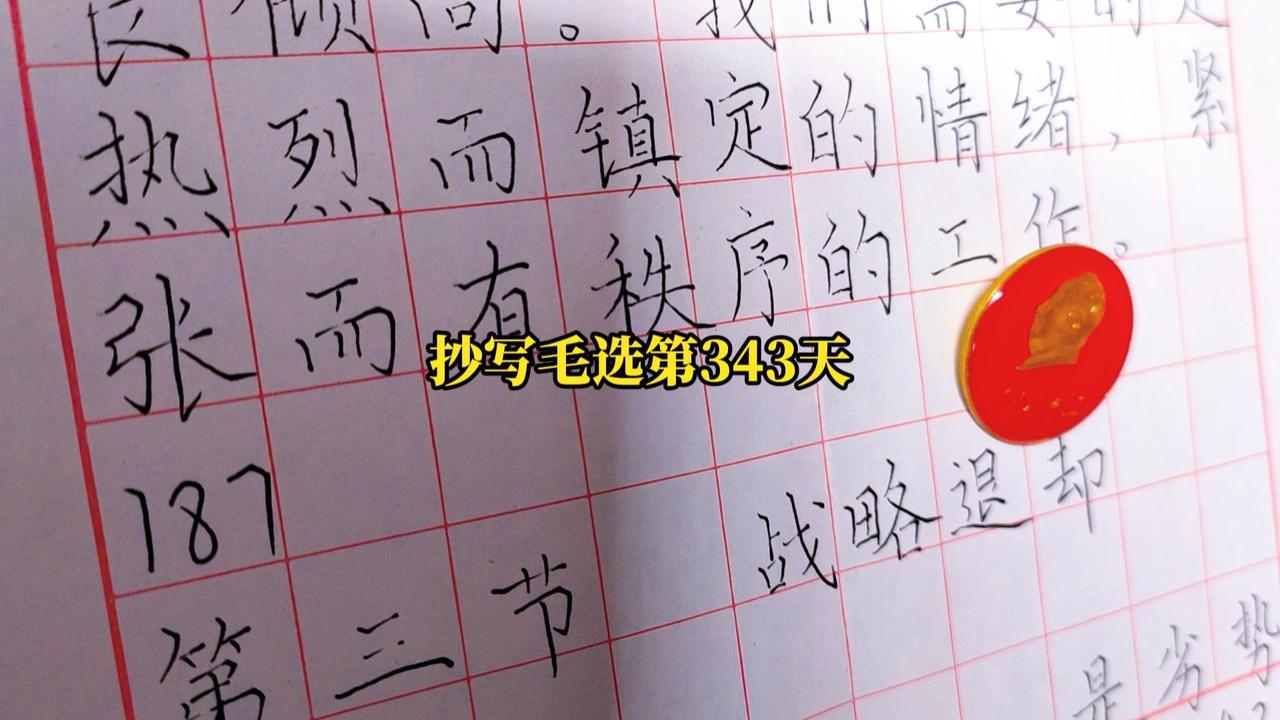 良倾向。我们需要的是
热烈而镇定的情绪，紧
张而有秩序的工作。
抄写毛选第343天
187
第三节 战略退却
是劣势